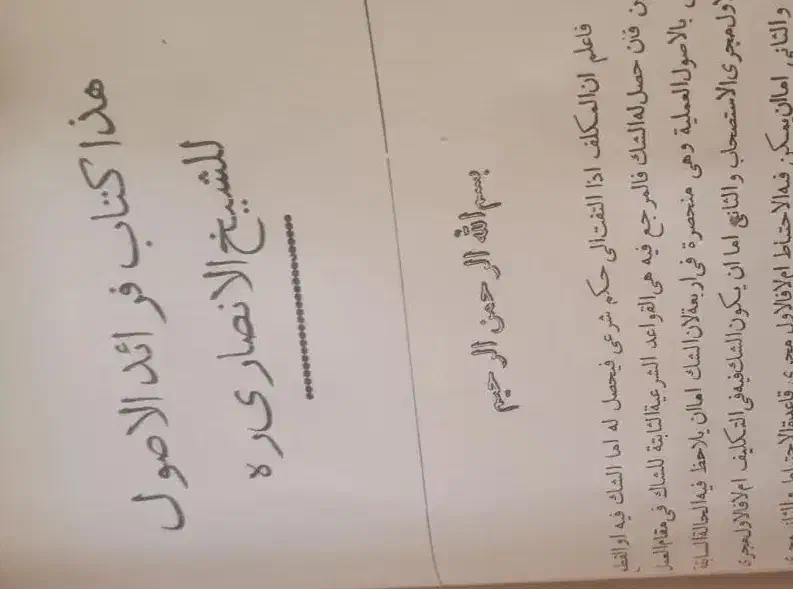 هذا كتاب فرائد الاصول
للشيخ الانصاری ره
بسم الله الرحمن الرحیم
فاعلم ان المكلف اذا التفت الی حكم شرعی فیحصل له اما الشك فیه او القط
ن فان حصل له الشك فالمرجع فیه هی القواعد الشرعیة الثابتة للشاك فی مقام العمل
بالاصول العملیة وهی منحصرة فی اربعة لان الشك اما ان یلاحظ فیه الحالة السابقة
الاول مجری الاستصحاب والثانی اما ان یكون الشك فیه فی التكلیف ام لا فالاول مجری
والثانی اما ان یمكن فیه الاحتیاط ام لا فالاول مجری قاعدة الاحتیاط والثانی مجری